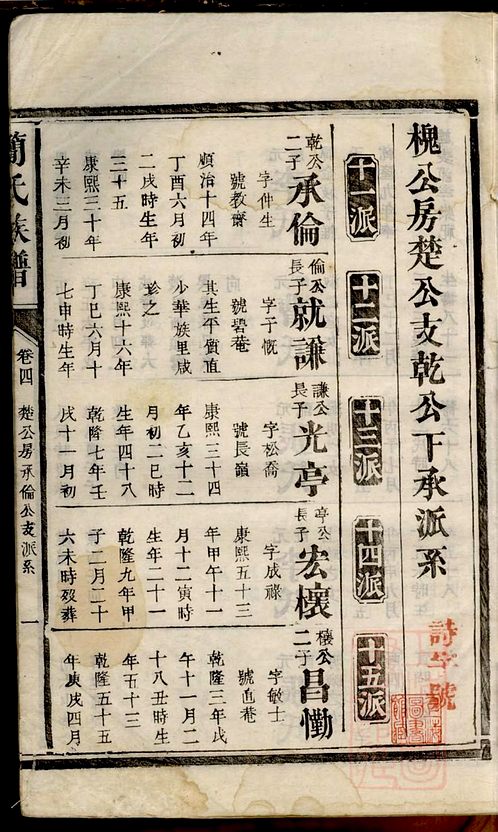 槐公房楚公支乾公下承派系
詩字號
十一派
十二派
十三派
十四派
十五派
乾公
二子
承倫
字仲生
號教齋
順治十四年
丁酉六月初
二戌時生年
三十五
康熙三十年
辛未三月初
倫公
長子
就謙
字子慨
號碧菴
其生平質直
小華族里咸
珍之
康熙十六年
丁巳六月十
七申時生年
謙公
長子
光亭
字松喬
號長嶺
康熙三十四
年乙亥十二
月初二巳時
生年四十八
乾隆七年壬
戌十一月初
亭公
長子
宏櫰
字成祿
康熙五十三
年甲午十一
月十二寅時
生年二十一
乾隆九年甲
子二月二十
六未時歿葬
櫰公
二子
昌慟
字敏士
號直菴
乾隆三年戊
午十一月二
十八丑時生
年五十三
乾隆五十五
年庚戌四月
簡氏族譜
卷四
楚公房承倫公支派系
一